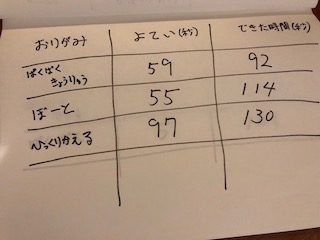 おりがみ よてい(チン) できた時間(チン)
ぱくぱく
きょうりゅう 59 92
ぼーと 55 114
ひっくりかえる 97 130